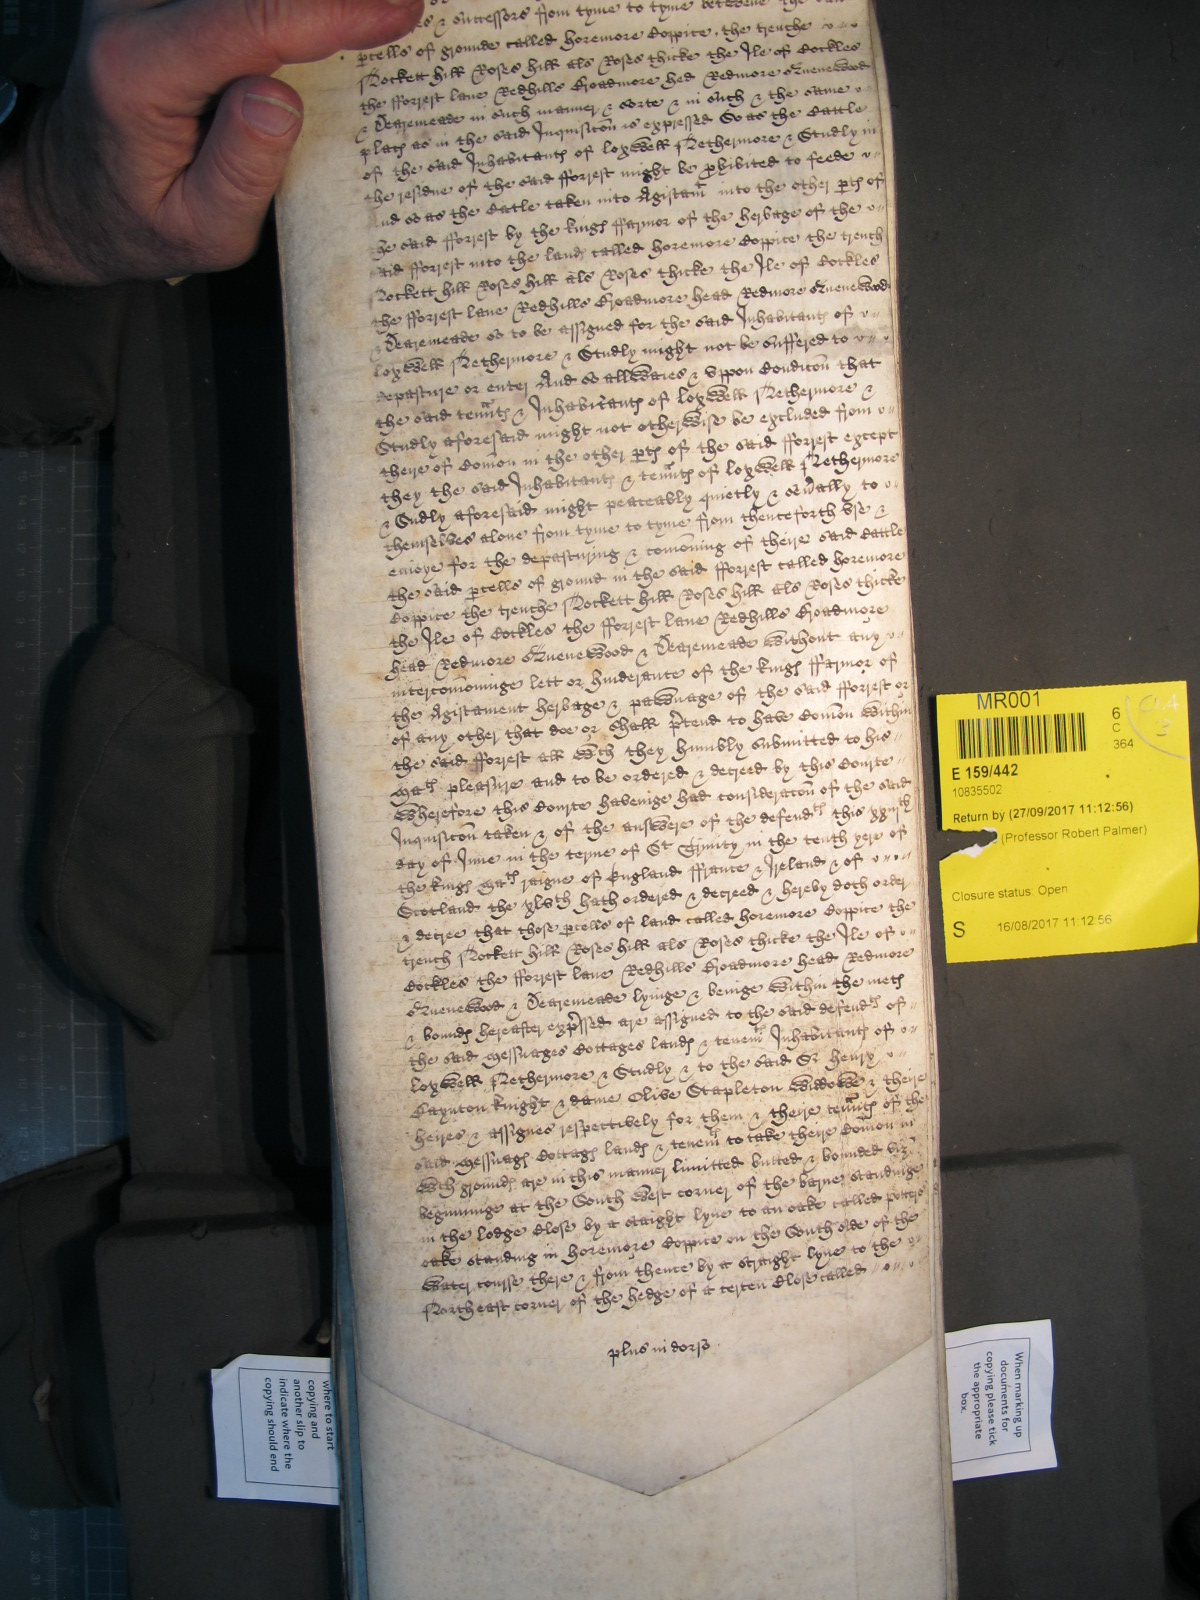 & successors from tyme to tyme betweene the
pcells of grounde called horemore Coppice, the trenche
Rockett hill Roses hill als Roses thicke the Ile of Cockles
the fforrest lane Redhills Broadmore hed Redmore Quenewood
& Dearemeade in such manner & sorte & in such & the same
places as in the said Inquisicon is expressed So as the Cattle
of the said Inhabitants of loxwell Nethermore & Studly in
the residue of the said fforrest might be phibited to feede
And so as the Catle taken into Agistamt into the other pts of
the said fforrest by the kings ffarmor of the herbage of the
said fforrest into the lands called horemore Coppice the trench
Rockett hill Roses hill als Roses thicke the Ile of Cockles
the fforrest lane Redhills Broadmore head Redmore Quenewood
& Dearemeade so to be assigned for the said Inhabitants of
loxwell Nethermore & Studly might not be suffered to
depasture or enter And so allwaies & uppon Condicon that
the said tennts & Inhabitants of loxwell Nethermore &
Studly aforesaid might not otherwise be excluded from
theire Comon in the other pts of the said fforrest except
they the said Inhabitants & tennts of loxwell Nethermore
& Sudly aforesaid might peaceably quietly & seually to
themselves alone from tyme to tyme from thenceforth use &
enioye for the depasturing & comoning of theire said Cattle
the said pcells of ground in the said fforrest called horemore
Coppice the trenche Rockett hill Roses hill als Roses thicke
the Ile of Cockles the fforrest lane Redhills Broadmore
head Redmore Quenewood & Dearemeade without any
intercomoninge lett or hinderance of the kings ffarmor of
the Agistament herbage & pawnage of the said fforrest or
of any other that doe or shall ptend to have Comon within
the said fforrest all wch they humbly submitted to his
Mats pleasure and to be ordered & decreed by this Courte
Wherefore this Courte haveinge had consideracon of the said
Inquisicon taken & of the answere of the defendts this
day of June in the terme of St Trinity in the tenth yere of
the kings Mats raigne of England ffrance & Ireland & of
Scotland the xlvth hath ordered & decreed & hereby doth order
& decree that those pcells of land called horemore Coppice the
trench Rockett hill Roses hill als Roses thicke the Ile of
Cockles the fforrest lane Redhills Broadmore head Redmore
Quenewood & Dearemeade lyinge & beinge within the mets
& bounds hereafter expssed are assigned to the said defends of
the said Messuages Cottages lands & tenemts Inhabitants of
loxwell Nethermore & Studly & to the said Sr Henry
Baynton knight & dame Olive Stapleton widdowe & theire
heires & assignes respectively for them & theire tennts of the
said Messuags Cottags lands & tenemts to take theire Comon in
wch grounds are in this manner limitted butted & bounded viz
beginninge at the South West corner of the barne standinge
in the lodge Close by a straight lyne to an oake called potters
oake standing in horemore Coppice on the South side of the
Water course there & from thence by a straight lyne to the
North east corner of the hedge of a certen Close called
plus in dorso
MR001
6
C
364
E 159/442
10835502
Return by (27/09/2017 11:12:56)
(Professor Robert Palmer)
Closure status: Open
S 16/08/2017 11:12:56
where to start
copying and
another slip to
indicate where the
copying should end
When marking up
documents for
copying please tick
the appropriate
box.